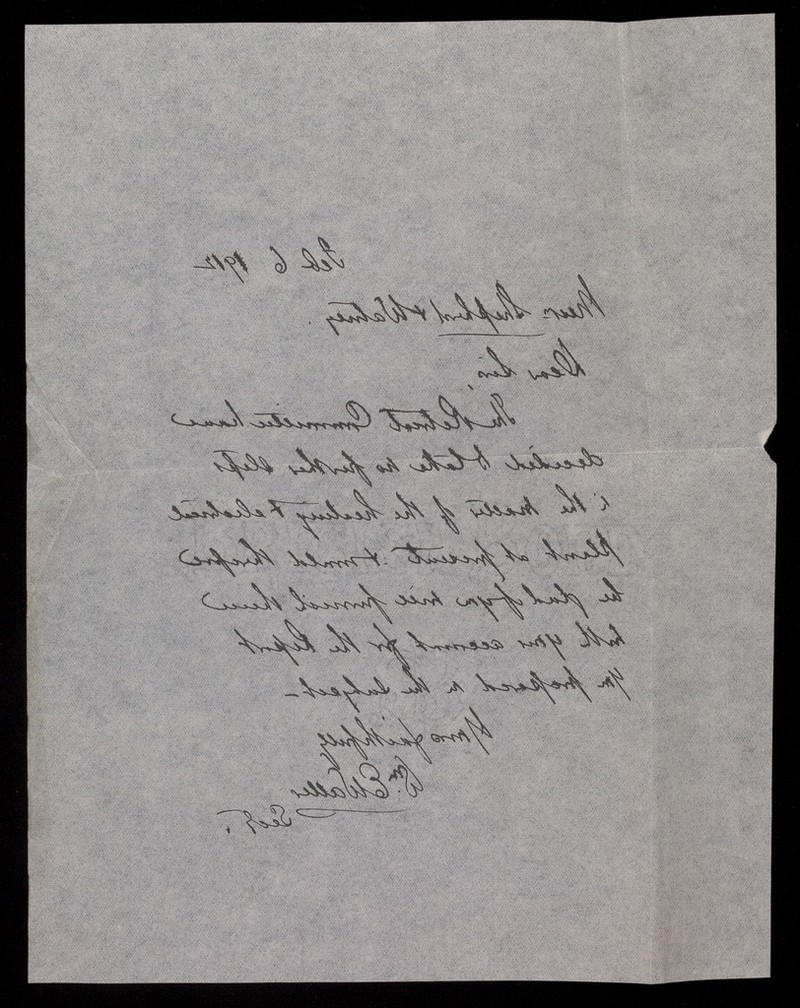 Feb 6 1912
Messrs Shepherd & Watney.
Dear Sirs,
The Retreat Committee have
decided to take no further steps
in the matter of the heating & electrical
plant at present & would therefore
be glad if you will furnish them
with your account for the Report
you prepared on the subject –
Yours faithfully
Wm. E Waller
Secy.